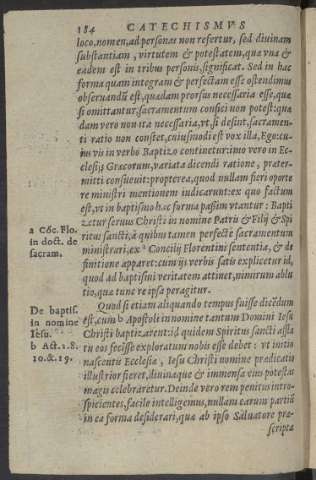 184 CATECHISMVS
loco, nomen, ad personas non refertur, sed diuinam
substantiam, virtutem & potestatem, quæ vna &
eadem est in tribus personis, significat. Sed in hac
forma quam integram & perfectam esse ostendimus
obseruandũ est, quædam prorsus necessaria esse, quæ
si omittantur, sacramentum confici non potest: quæ
dam vero non ita necessaria, vt, si desint, sacramen-
ti ratio non constet, cuiusmodi est vox illa, Ego: cu-
ius vis in verbo Baptizo continetur: imo vero in Ec-
clesijs Græcorum, variata dicendi ratione, præter-
mitti consueuit: propterea, quod nullam fieri oporte
re ministri mentionem indicarunt: ex quo factum
est, vt in baptismo hac forma passim vtantur: Bapti
zetur seruus Christi in nomine Patris & Filij & Spi
ritus sancti, à quibus tamen perfectè sacramentum
ministrari, ex a Concilij Florentini sententia, & de
finitione apparet: cum ijs verbis satis explicetur id,
quod ad baptismi veritatem attinet, nimirum ablu
tio, quæ tunc re ipsa peragitur.
a Cõc. Flo.
in doct. de
sacram.
Quod si etiam aliquando tempus fuisse dicẽdum
est, cum b Apostoli in nomine tantum Domini Iesu
Christi baptizarent: id quidem Spiritus sancti afla
tu eos fecisse exploratum nobis esse debet: vt initio
nascentis Ecclesiæ, Iesu Christi nomine prædicatio
illustrior fieret, diuinaque & immensa eius potestas
magis celebraretur. Deinde vero rem penitus intro-
spicientes, facile intelligemus, nullam earum partiũ
in ea forma desiderari, quæ ab ipso Saluatore præ-
scripta
De baptis.
in nomine
Iesu.
b Act. 2. 8.
10. & 19.